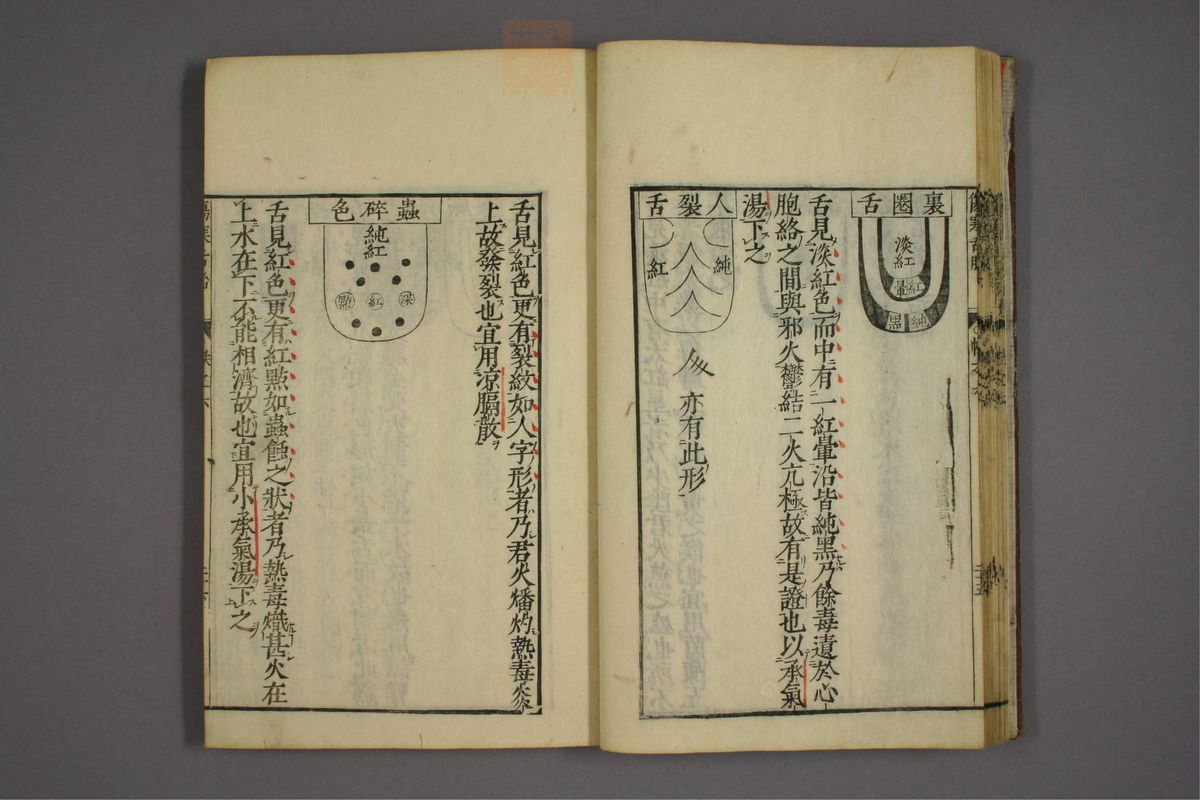 裏圈舌
淡紅
紅暈
純黑
舌見淡紅色而中有一紅暈沿皆純黑乃餘毒遺於心
胞絡之間與邪火鬱結二火亢極故有是證也以承氣
湯下之
人裂舌
純
紅
亦有此形
舌見紅色更有裂紋如人字形者乃君火燔灼熱毒炎
上故發裂也宜用凉膈散
蟲碎色
純紅
深紅點
舌見紅色更有紅點如蟲蝕之狀者乃熱毒熾甚火在
上水在下不能相濟故也宜用小承氣湯下之